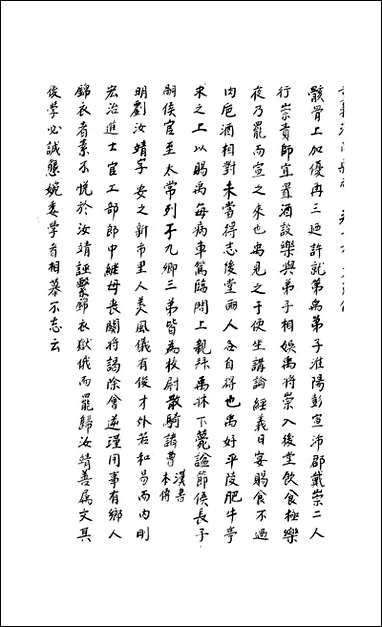 骸骨上加優再三迺許就第禹弟子淮陽彭宣沛郡戴崇二人
行崇責師宜置酒設樂與弟子相娛禹將崇入後堂飲食極樂
夜乃罷而宣之來也禹見之于便坐講論經義日宴賜食不過
肉卮酒相對未嘗得志後堂兩人各自得也禹好平陵肥牛亭
求之上以賜禹每病車駕臨問上親拜禹牀下薨諡節侯長子
嗣侯官至太常列于九卿三弟皆為校尉散騎諸曹漢書本傳
明劉汝靖字安之新市里人美風儀有俊才外若和易而內剛
宏治進士官工部郎中繼母喪闋將謁除會逆瑾用事有鄉人
錦衣者素不悅於汝靖誣繫錦衣獄俄而罷歸汝靖善屬文其
後學必誠懇婉委學者相慕不忘云